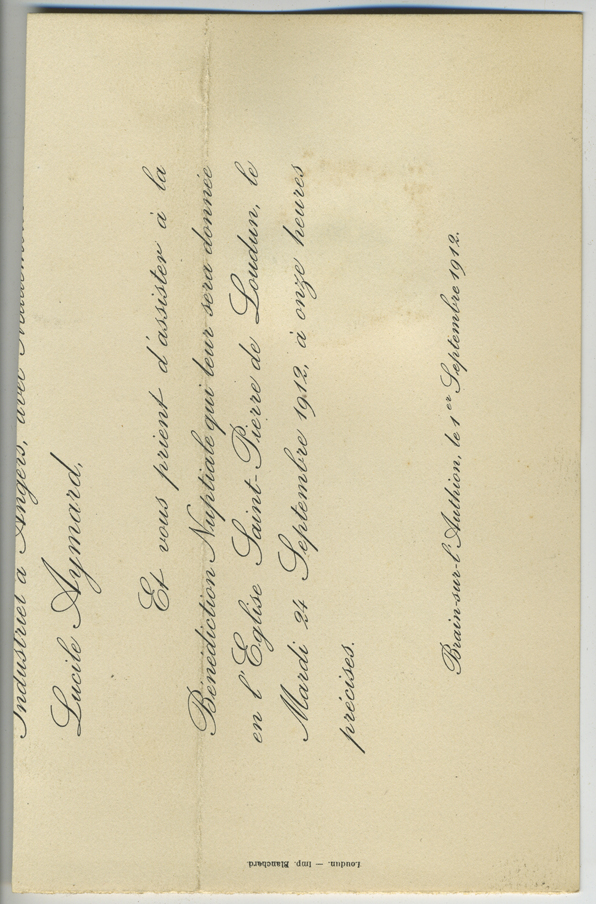 Industriel à Angers, avec Mademoiselle
Lucile Aymard,
Et vous prient d'assister à la
Bénédiction Nuptiale qui leur sera donnée
en l'Eglise Saint-Pierre de Loudun, le
Mardi 24 Septembre 1912, à onze heures
précises.
Brain-sur-l'Authion, le 1er Septembre 1912.
Loudun. — Imp. Blanchard.